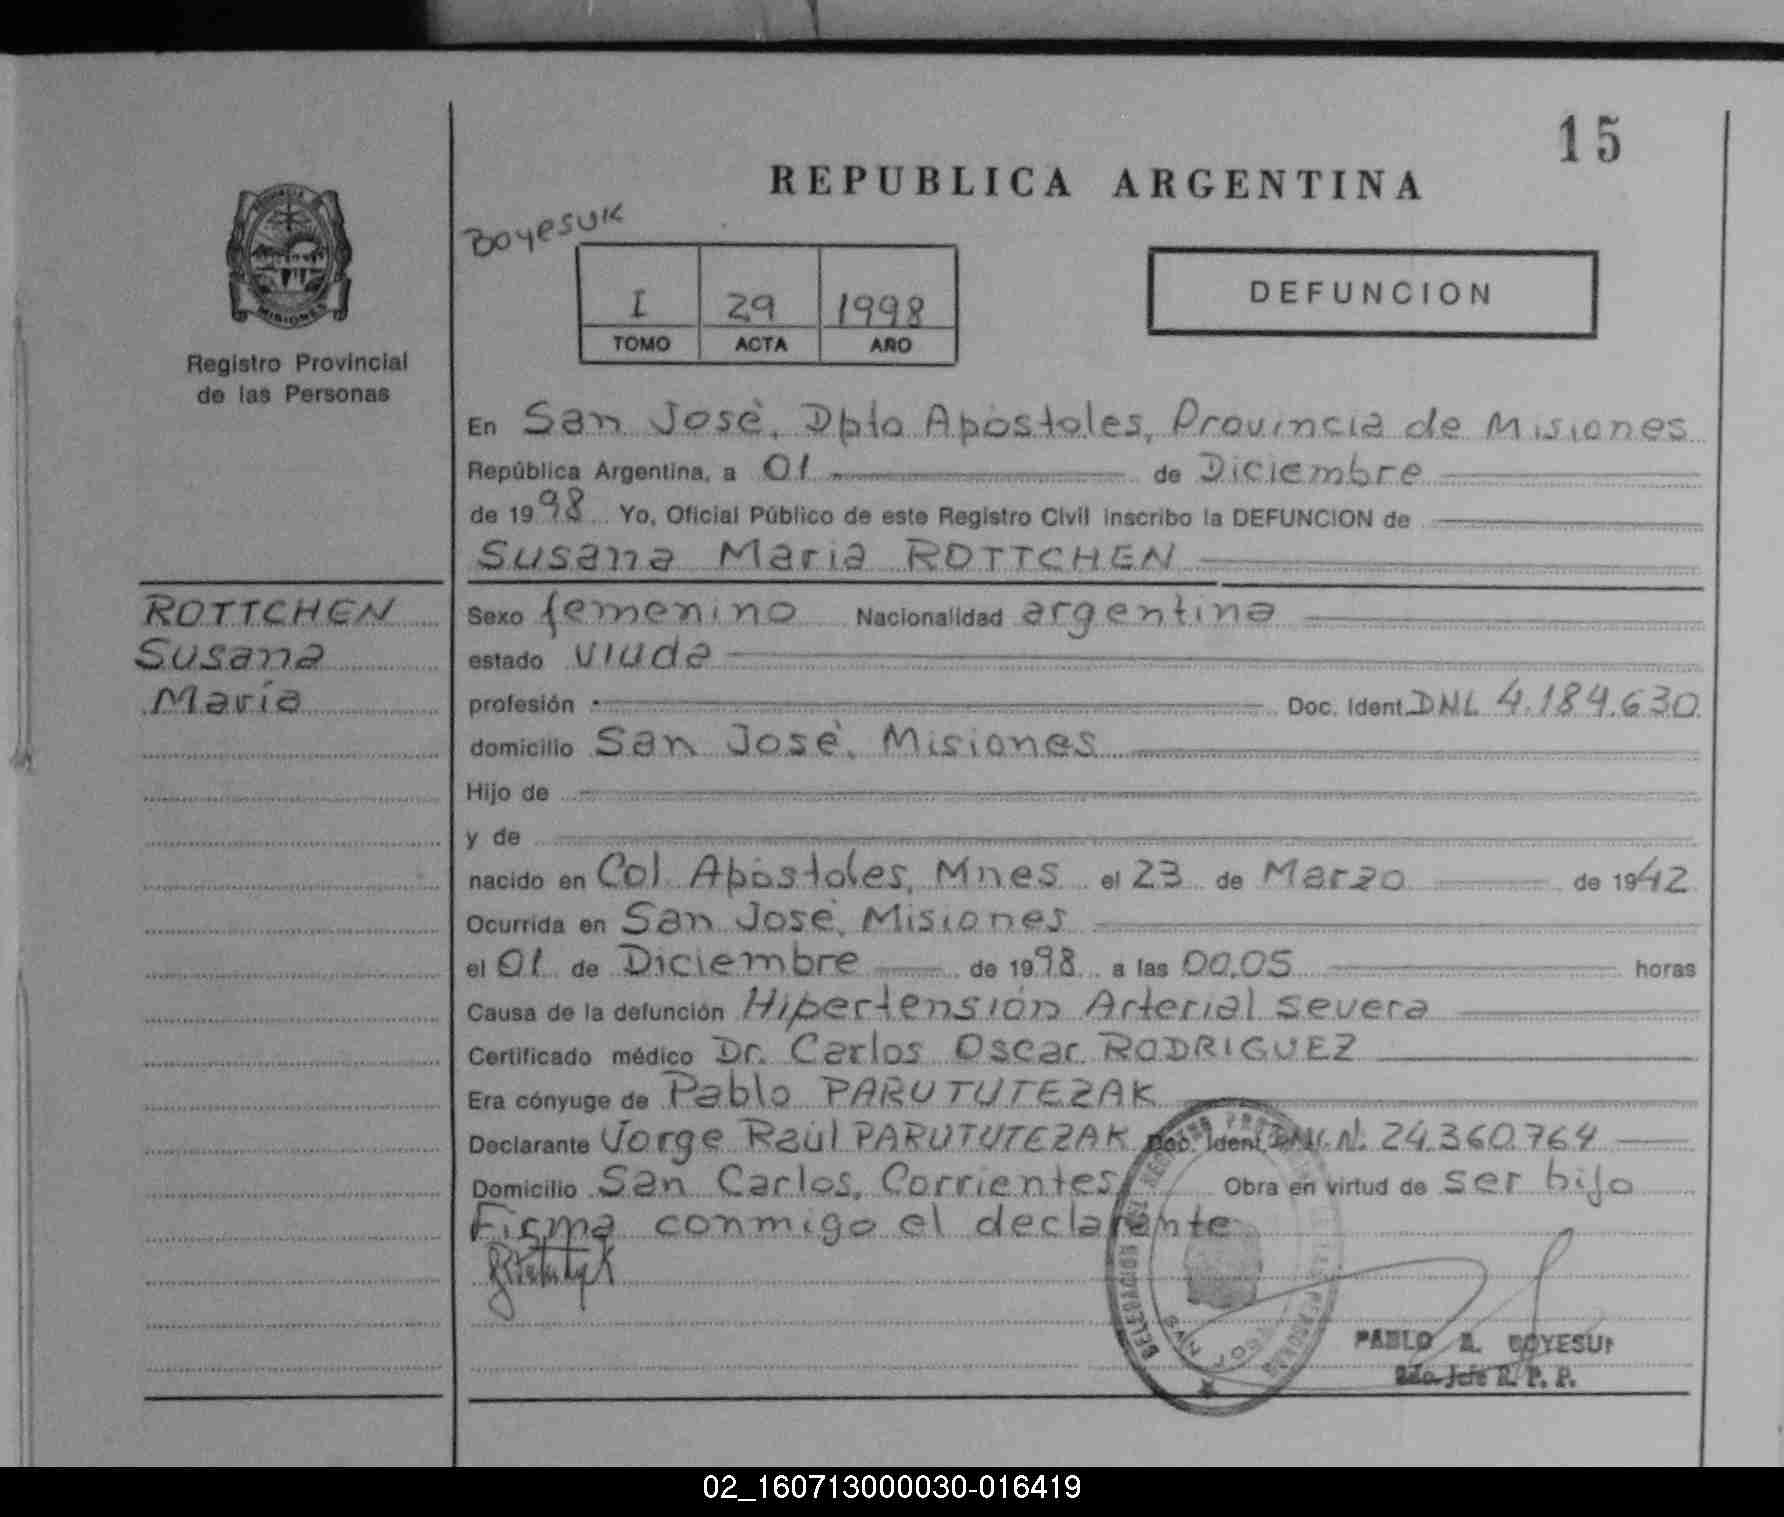 15
REPUBLICA ARGENTINA
Boyesuk
I 29 1998
TOMO ACTA AÑO
DEFUNCION
PROVINCIA
MISIONES
Registro Provincial
de las Personas
En San José, Dpto Apóstoles, Provincia de Misiones
República Argentina, a 01 de Diciembre
de 1998 Yo, Oficial Público de este Registro Civil inscribo la DEFUNCION de
Susana Maria ROTTCHEN
ROTTCHEN
Susana
María
Sexo femenino Nacionalidad argentina
estado viuda
profesión Doc. Ident. DNI 4.184.630
domicilio San José, Misiones
Hijo de
y de
nacido en Col. Apóstoles, Mnes el 23 de Marzo de 1942
Ocurrida en San José, Misiones
el 01 de Diciembre de 1998 a las 00.05 horas
Causa de la defunción Hipertensión Arterial severa
Certificado médico Dr. Carlos Oscar RODRIGUEZ
Era cónyuge de Pablo PARUTUTEZAK
Declarante Jorge Raúl PARUTUTEZAK Doc. Ident. DNI. N. 24.360.764
Domicilio San Carlos, Corrientes Obra en virtud de ser hijo
Firma conmigo el declarante
PABLO A. BOYESUK
2do. Jefe R. P. P.
02_160713000030-016419